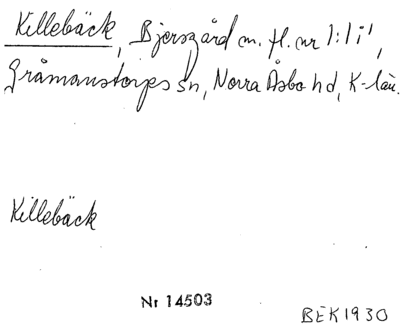 Killebäck, Bjersgård m. fl. nr 1:1 i,
Gråmanstorps sn, Norra Åsbo hd, K-län.
Killebäck
Nr 14503
BEK 1930